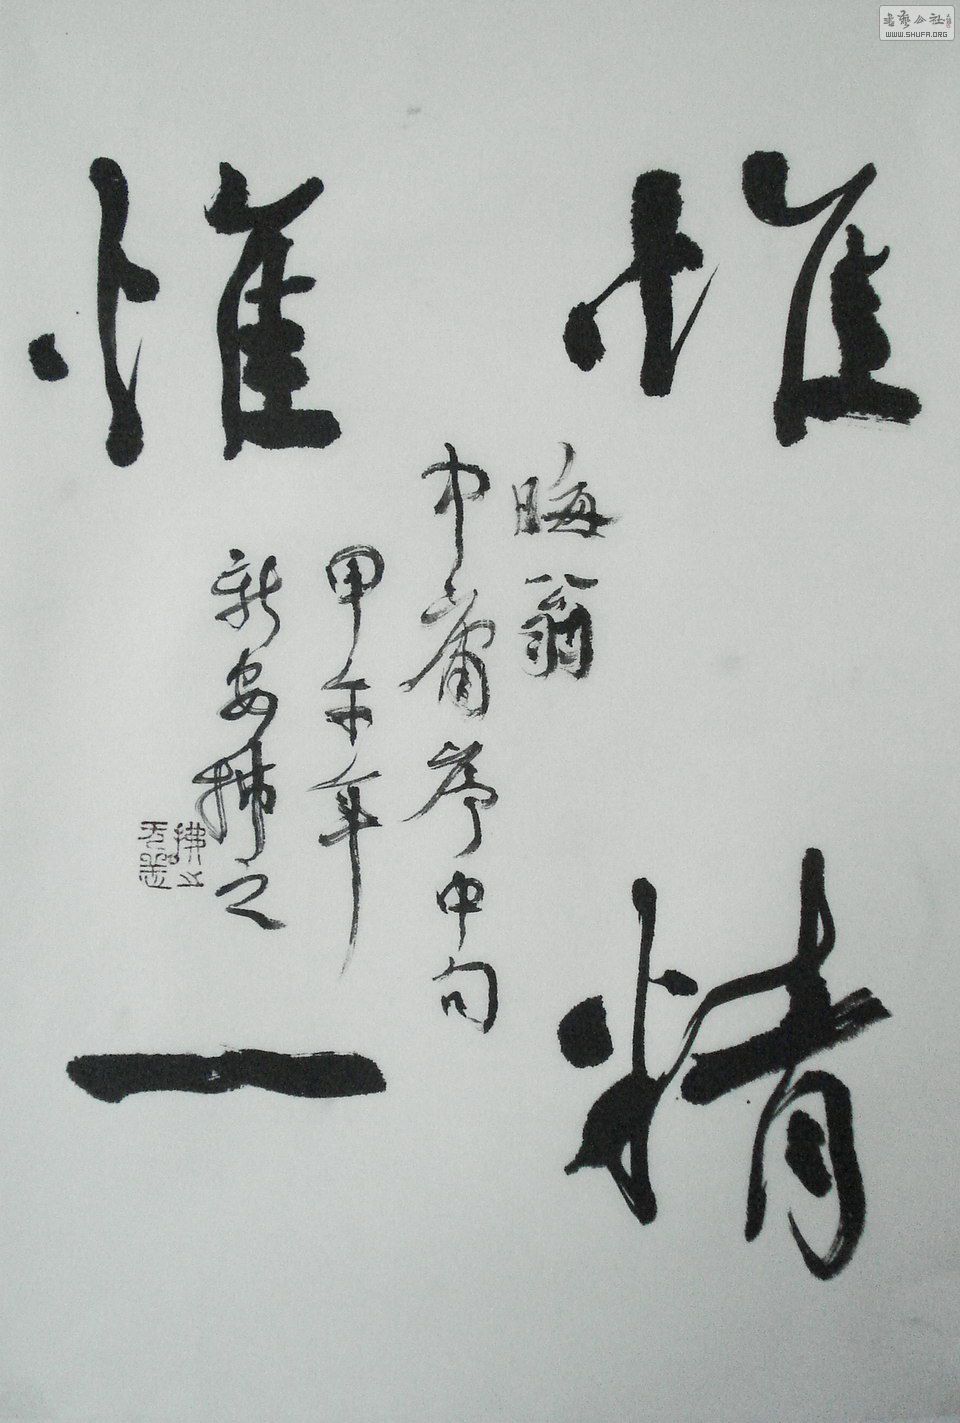 惟精
惟一
晦翁
中庸序中句
甲午年
新安拂之
書藝公社
WWW.SHUFA.ORG